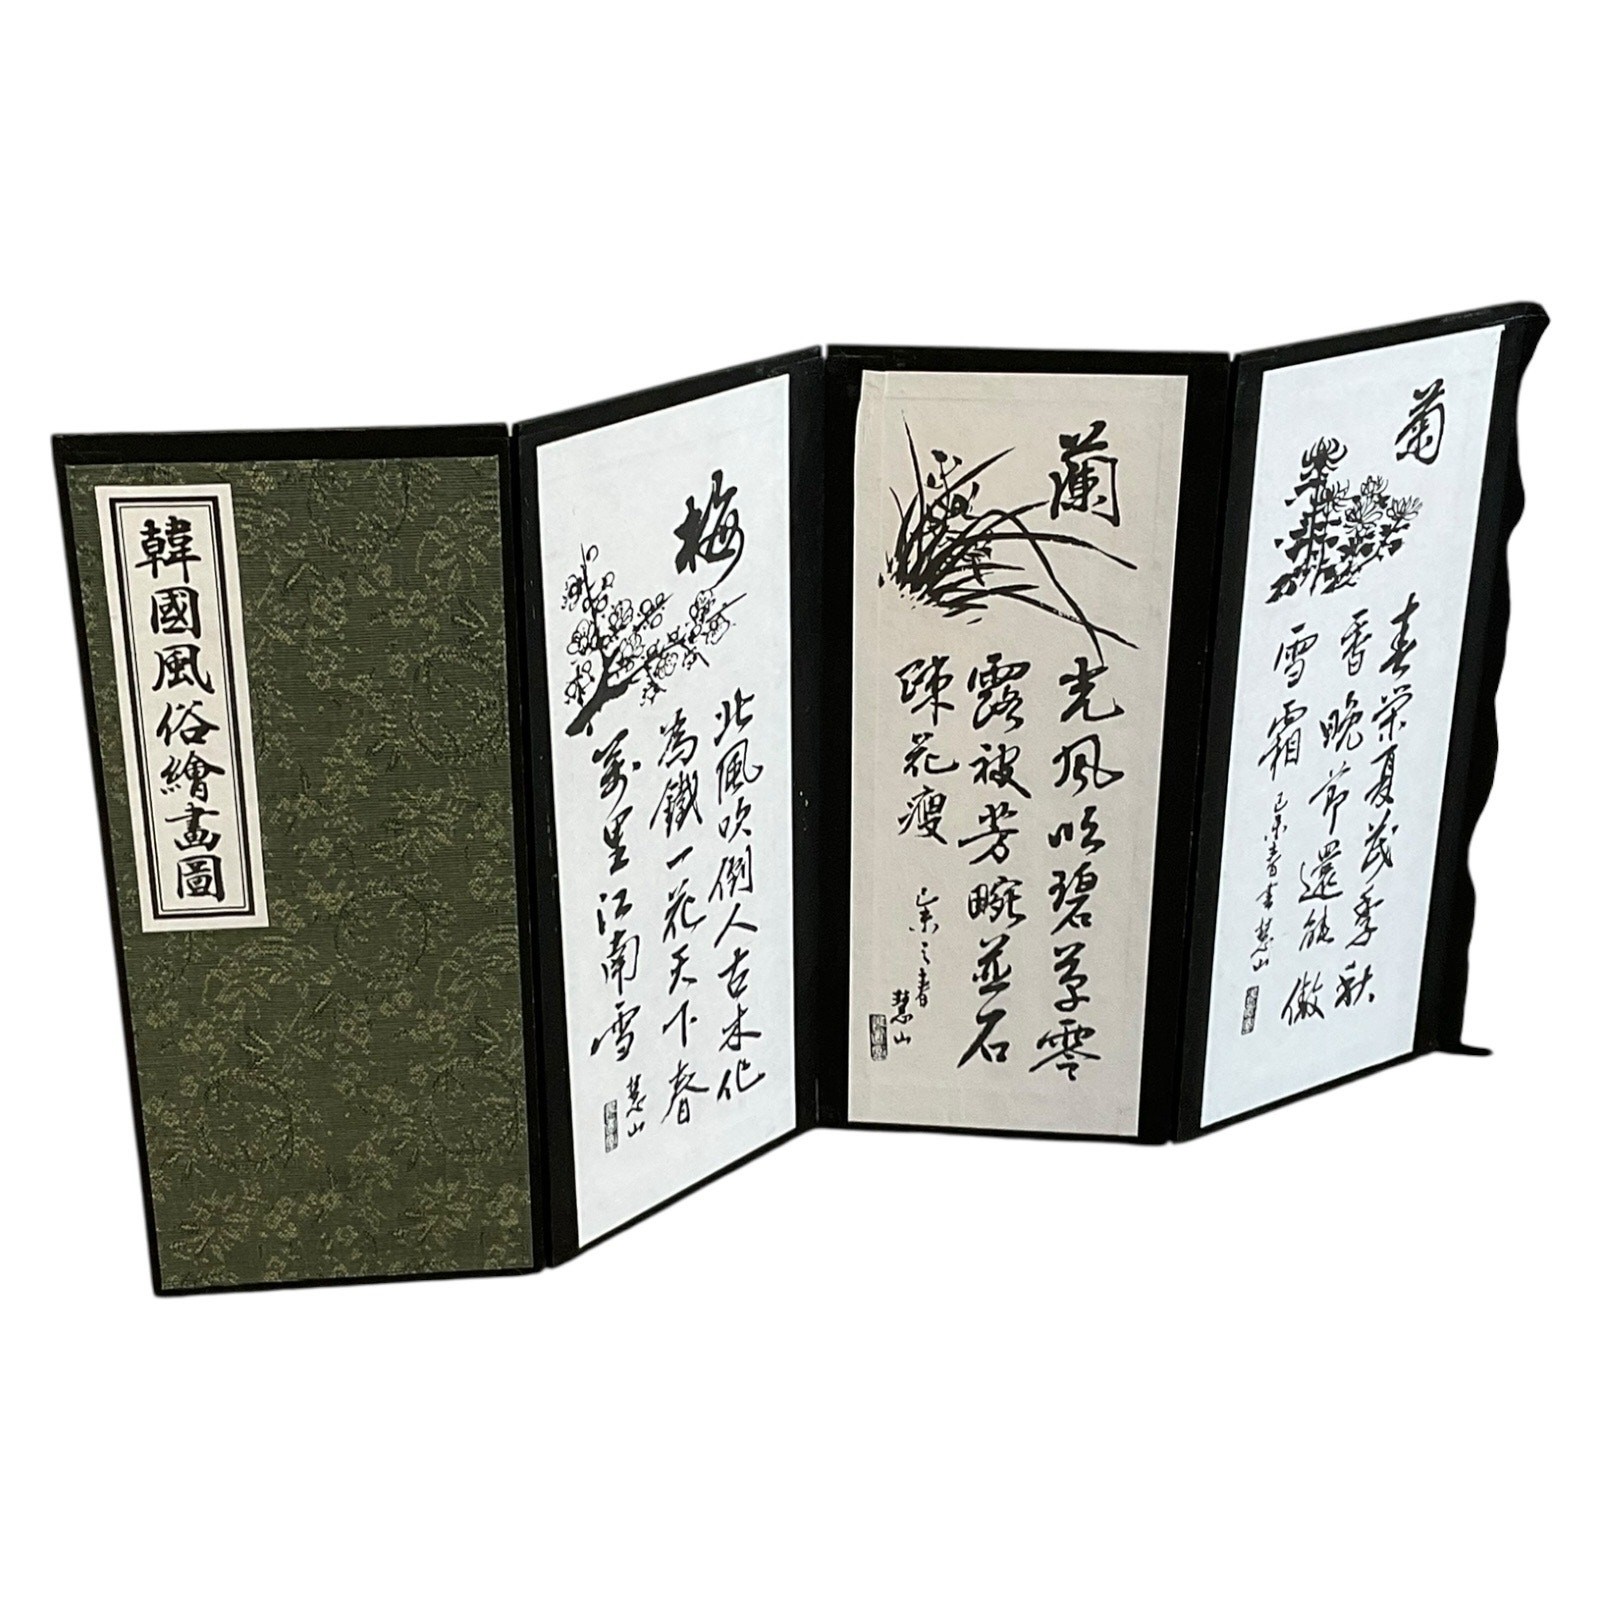 韓國風俗繪畫圖
梅
北風吹倒人古木作
為鐵一花天下春
萬里江南雪
慧山
蘭
光風吹碧草零
露被芳畹並石
疎花瘦
己未之春
慧山
菊
春榮夏茂季秋
香晚節還能傲
雪霜
己未春書慧山